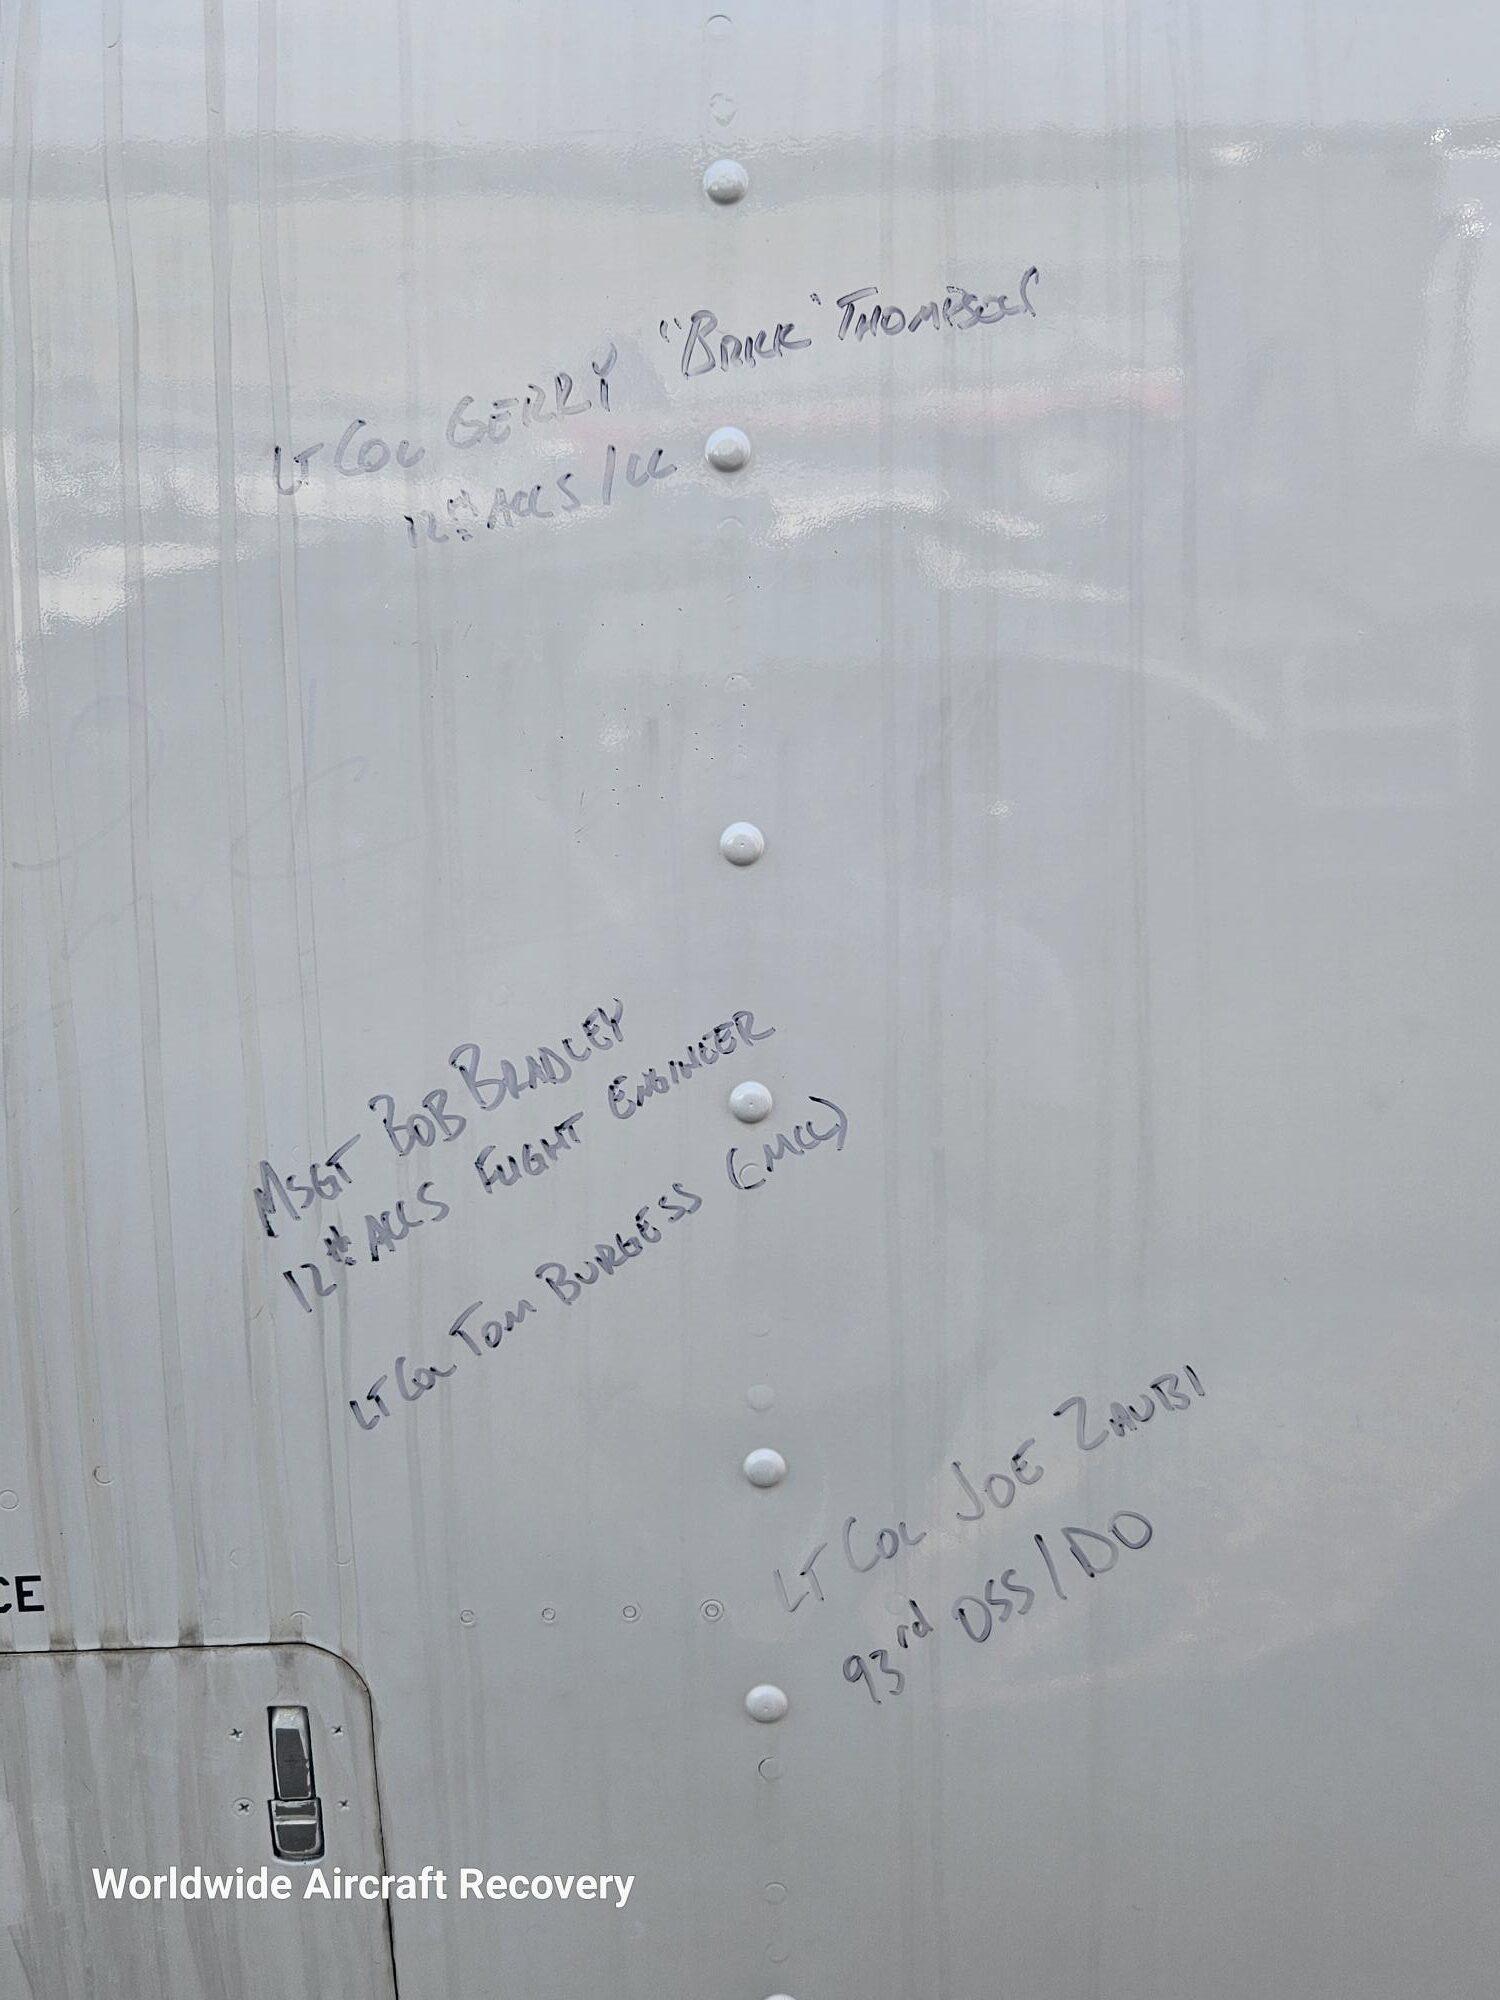 LT COL GERRY "BRICK" THOMPSON
12TH ACCS/CC
MSGT BOB BRADLEY
12TH ACCS FLIGHT ENGINEER
LT COL TOM BURGESS (MCC)
LT COL JOE ZAUBI
93rd OSS/DO
CE
Worldwide Aircraft Recovery